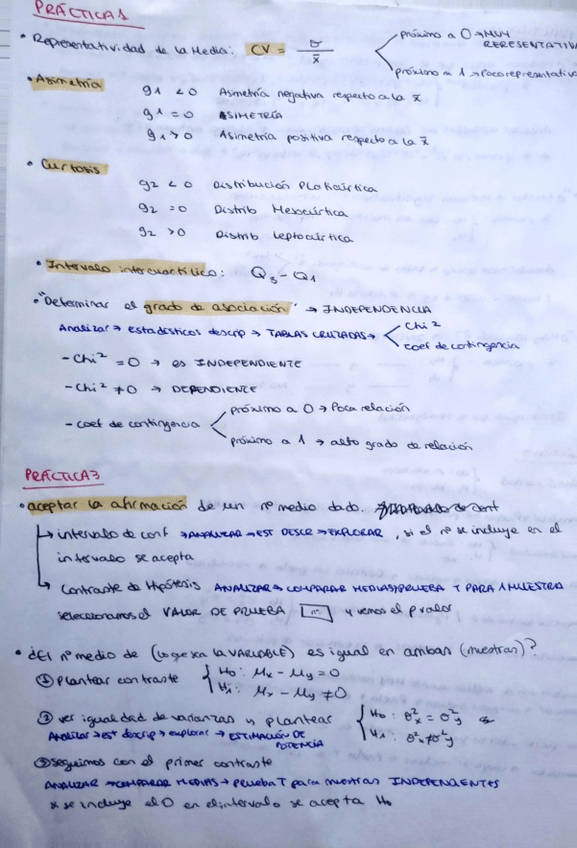 PRÁCTICA 1
• Representatividad de la Media: CV = σ / x̄
próximo a 0 → MUY REPRESENTATIVA
próximo a 1 → Poco representativo
• Asimetría
g1 < 0 Asimetría negativa respecto a la x̄
g1 = 0 ASIMETRÍA
g1 > 0 Asimetría positiva respecto a la x̄
• Curtosis
g2 < 0 Distribución Platicúrtica
g2 = 0 Distrib Mesocúrtica
g2 > 0 Distrib Leptocúrtica
• Intervalo intercuartílico: Q3 - Q1
• "Determinar el grado de asociación" → INDEPENDENCIA
Analizar → estadísticos descrip → TABLAS CRUZADAS →
Chi²
coef de contingencia
- Chi² = 0 → es INDEPENDIENTE
- Chi² ≠ 0 → DEPENDIENTE
- coef de contingencia
próximo a 0 → Poca relación
próximo a 1 → alto grado de relación
PRÁCTICA 3
• aceptar la afirmación de un nº medio dado.
→ intervalo de conf → ANALIZAR → EST DESCR → EXPLORAR, si el nº se incluye en el
intervalo se acepta
→ Contraste de Hipótesis ANALIZAR → COMPARAR MEDIAS → PRUEBA T PARA 1 MUESTRA
seleccionamos el VALOR DE PRUEBA y vemos el p valor
• ¿El nº medio de (lo que sea la VARIABLE) es igual en ambas (muestras)?
① plantear contraste
H0: μx - μy = 0
H1: μx - μy ≠ 0
② ver igualdad de varianzas y plantear
H0: σ²x = σ²y
H1: σ²x ≠ σ²y
Analizar → est descrip → explorar → ESTIMACIÓN DE
POTENCIA
③ seguimos con el primer contraste
ANALIZAR → COMPARAR MEDIAS → prueba T para muestras INDEPENDIENTES
* se incluye el 0 en el intervalo se acepta H0